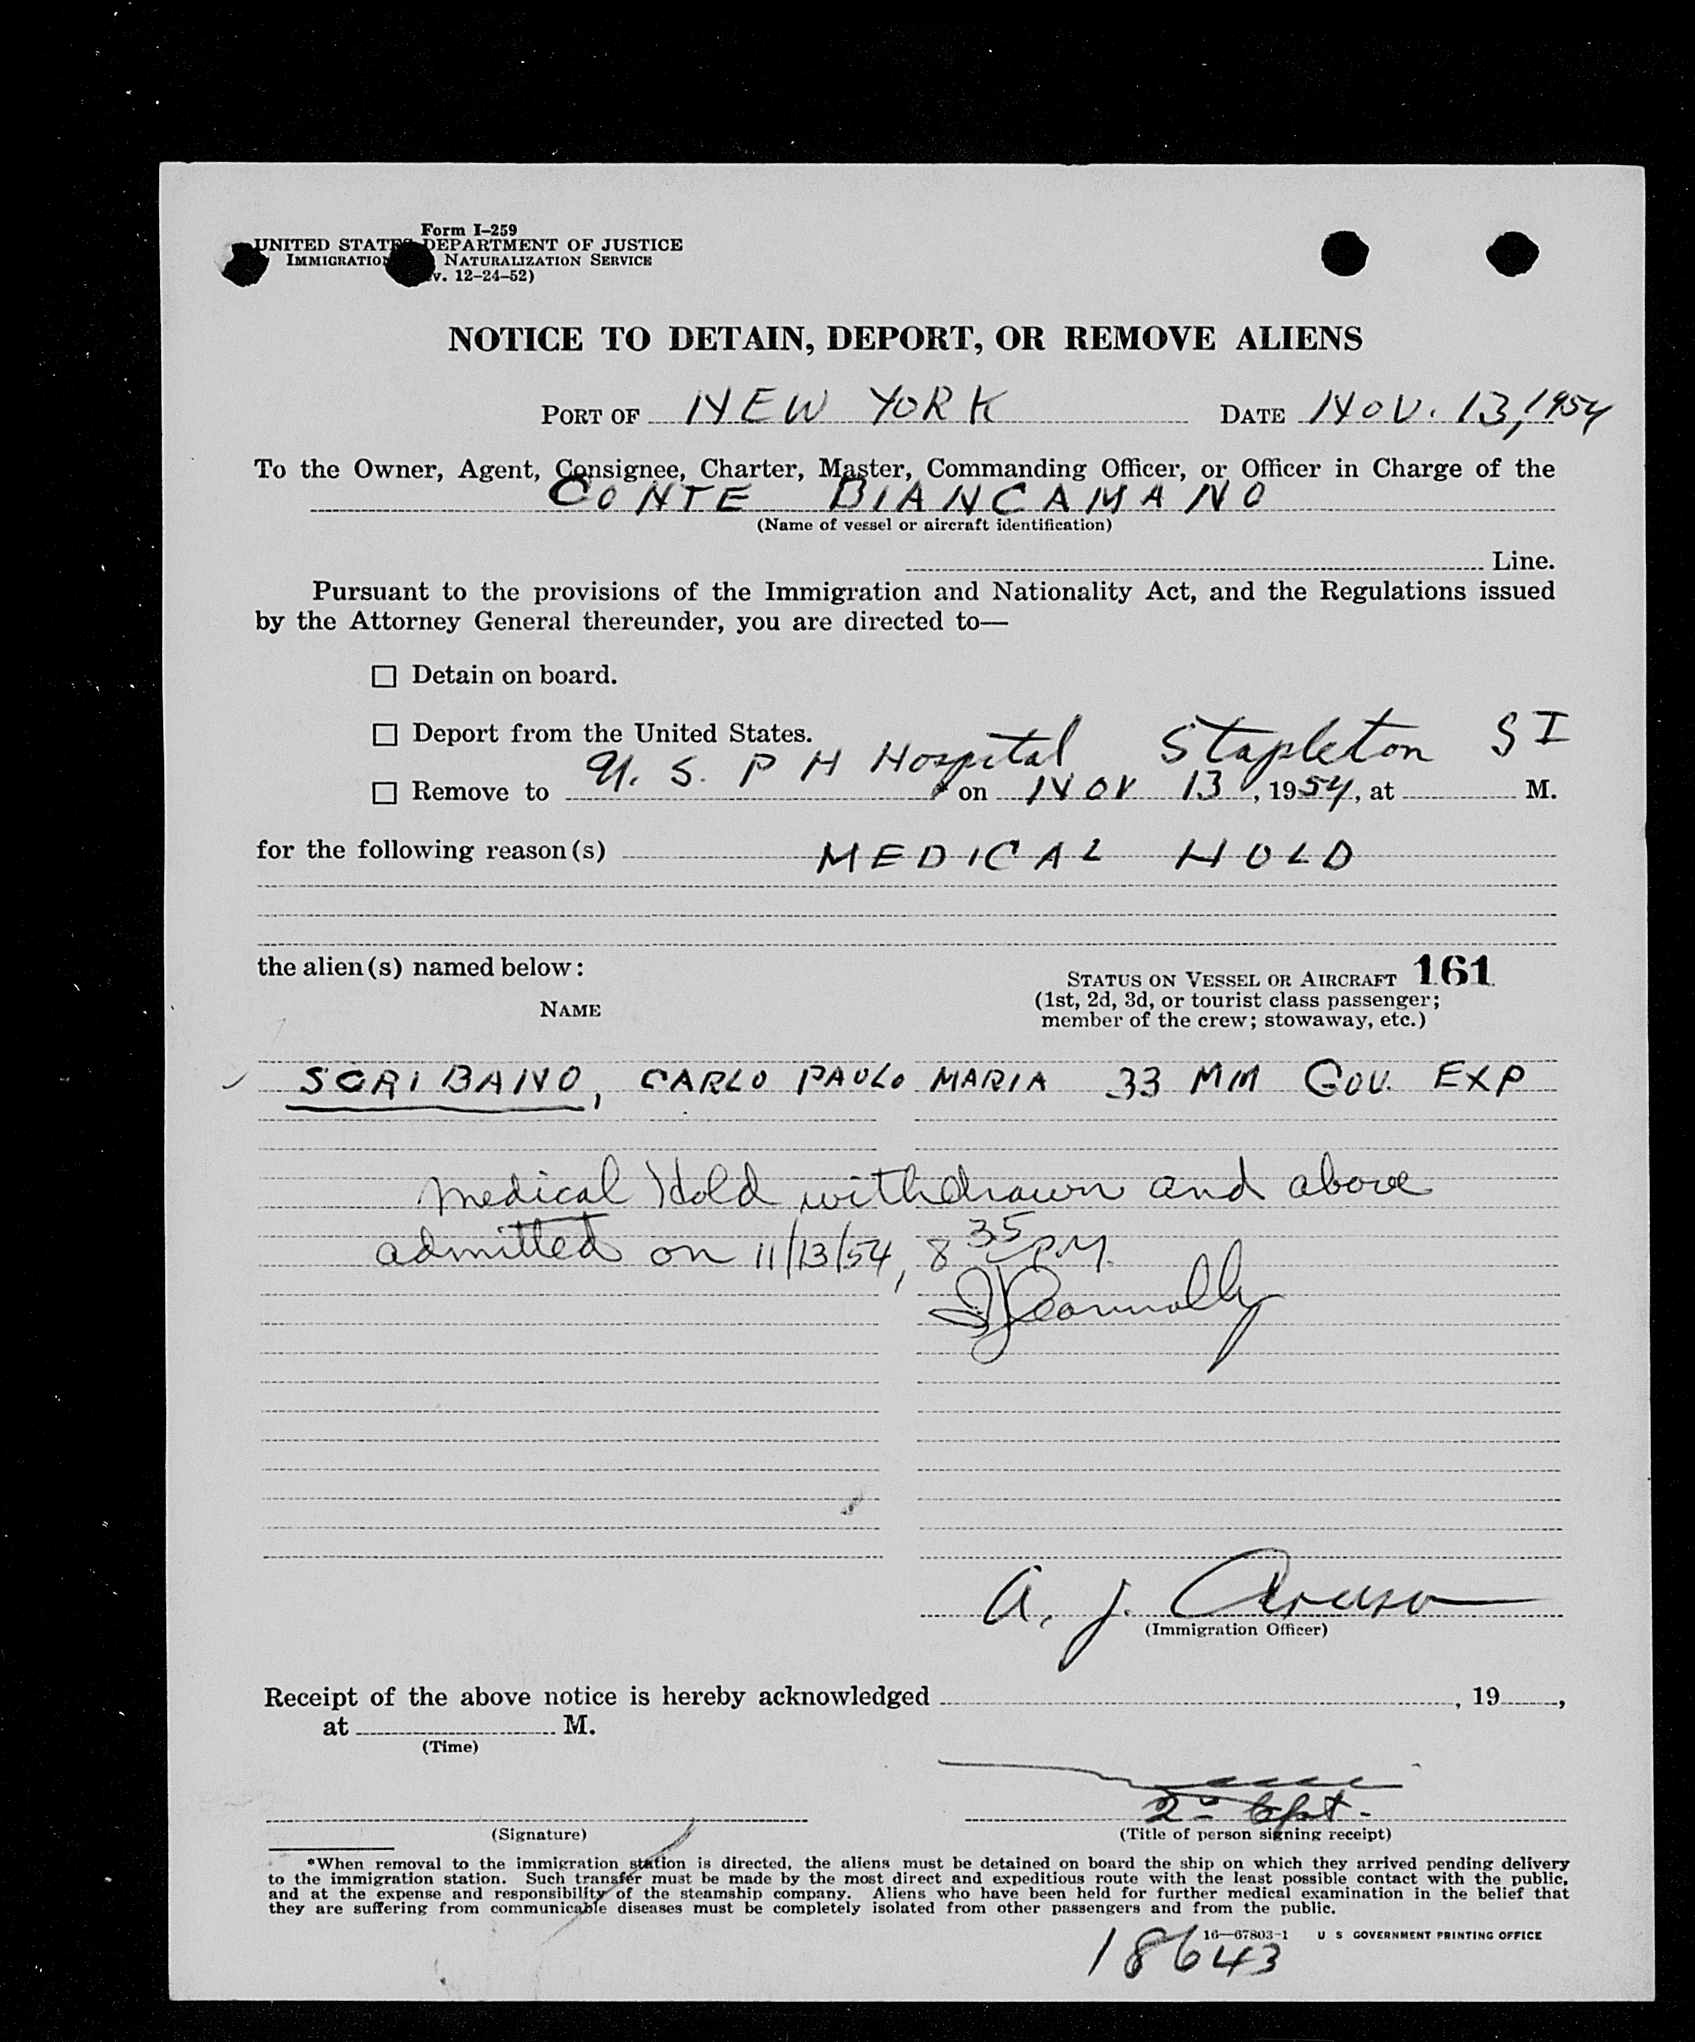 Form I-259
UNITED STATES DEPARTMENT OF JUSTICE
IMMIGRATION NATURALIZATION SERVICE
v. 12-24-52)
NOTICE TO DETAIN, DEPORT, OR REMOVE ALIENS
PORT OF NEW YORK DATE NOV. 13, 1954
To the Owner, Agent, Consignee, Charter, Master, Commanding Officer, or Officer in Charge of the
CONTE BIANCAMANO
(Name of vessel or aircraft identification)
Line.
Pursuant to the provisions of the Immigration and Nationality Act, and the Regulations issued
by the Attorney General thereunder, you are directed to—
☐ Detain on board.
☐ Deport from the United States.
☐ Remove to U. S. P H Hospital Stapleton S I * on NOV 13, 1954, at M.
for the following reason(s) MEDICAL HOLD
the alien(s) named below:
STATUS ON VESSEL OR AIRCRAFT 161
NAME
(1st, 2d, 3d, or tourist class passenger;
member of the crew; stowaway, etc.)
SCRIBANO, CARLO PAOLO MARIA 33 MM GOV. EXP
Medical Hold withdrawn and above
admitted on 11/13/54, 8 35 P.M.
Connolly
A. J.
(Immigration Officer)
Receipt of the above notice is hereby acknowledged , 19 ,
at M.
(Time)
2º
(Signature)
(Title of person signing receipt)
*When removal to the immigration station is directed, the aliens must be detained on board the ship on which they arrived pending delivery
to the immigration station. Such transfer must be made by the most direct and expeditious route with the least possible contact with the public,
and at the expense and responsibility of the steamship company. Aliens who have been held for further medical examination in the belief that
they are suffering from communicable diseases must be completely isolated from other passengers and from the public.
16—67803-1 U S GOVERNMENT PRINTING OFFICE
18643